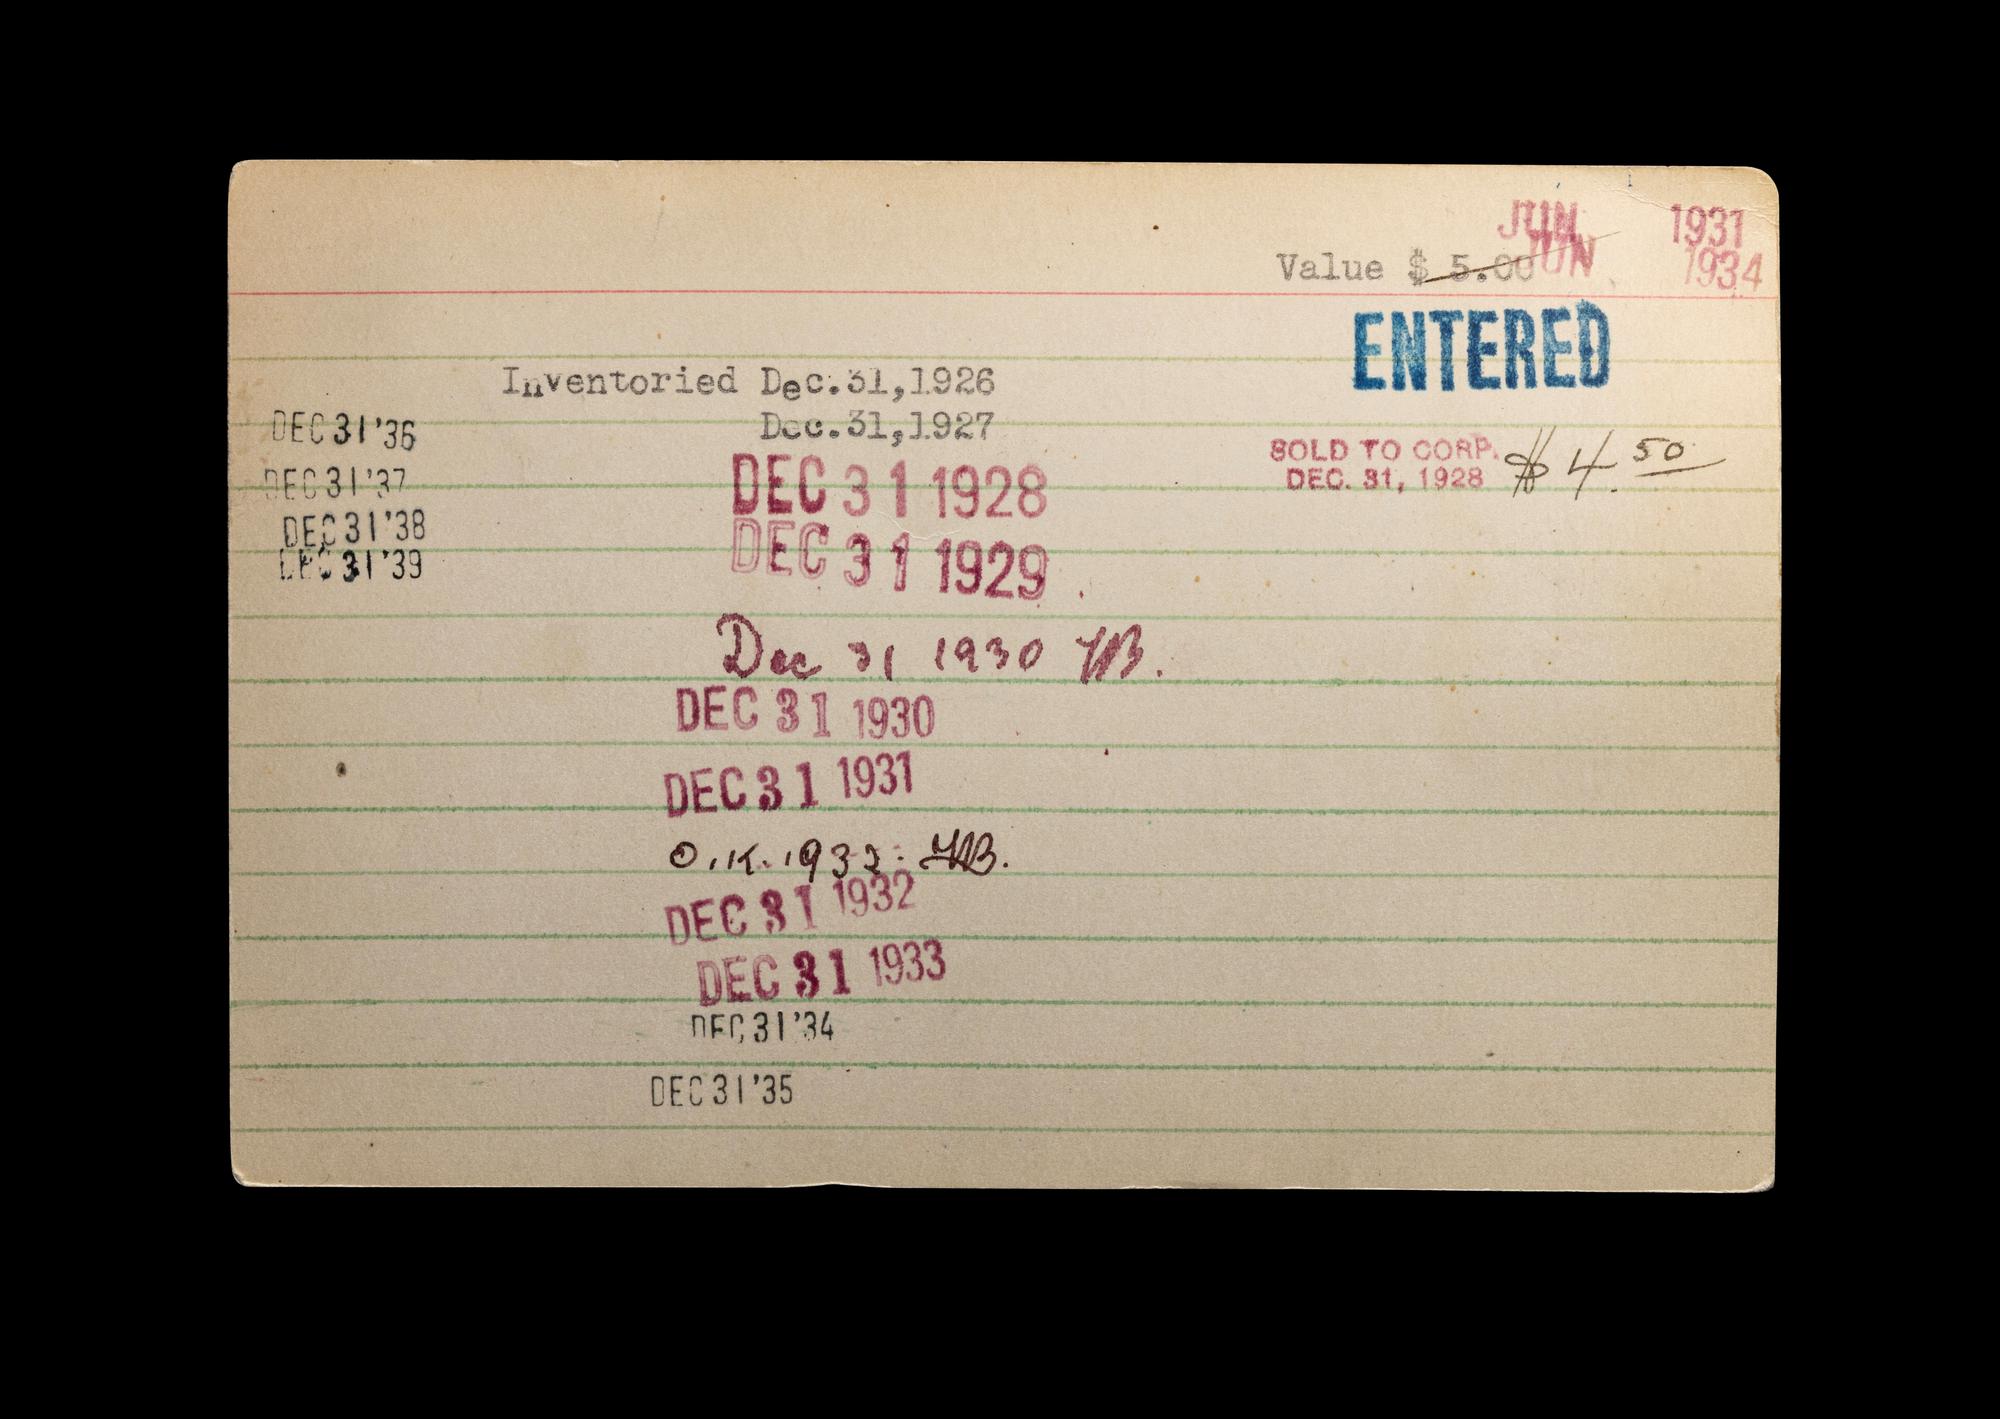 JUN 1931
JUN 1934
Value $ 5.00
ENTERED
Inventoried Dec.31,1926
Dec.31,1927
SOLD TO CORP.
DEC. 31, 1928 $4.50
DEC 31 1928
DEC 31 1929
Dec 31 1930
DEC 31 1930
DEC 31 1931
O.K. 1932.
DEC 31 1932
DEC 31 1933
DEC 31 '34
DEC 31 '35
DEC 31 '36
DEC 31 '37
DEC 31 '38
DEC 31 '39